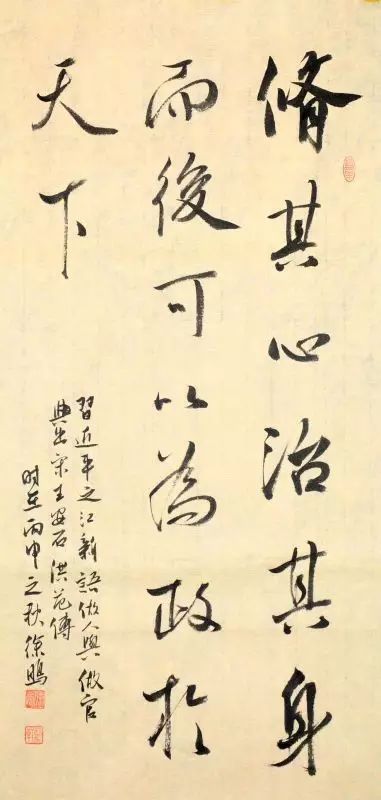 脩其心治其身
而後可以為政於
天下
習近平之江新語做人與做官
典出宋王安石洪范傳
时在丙申之秋徐鵬